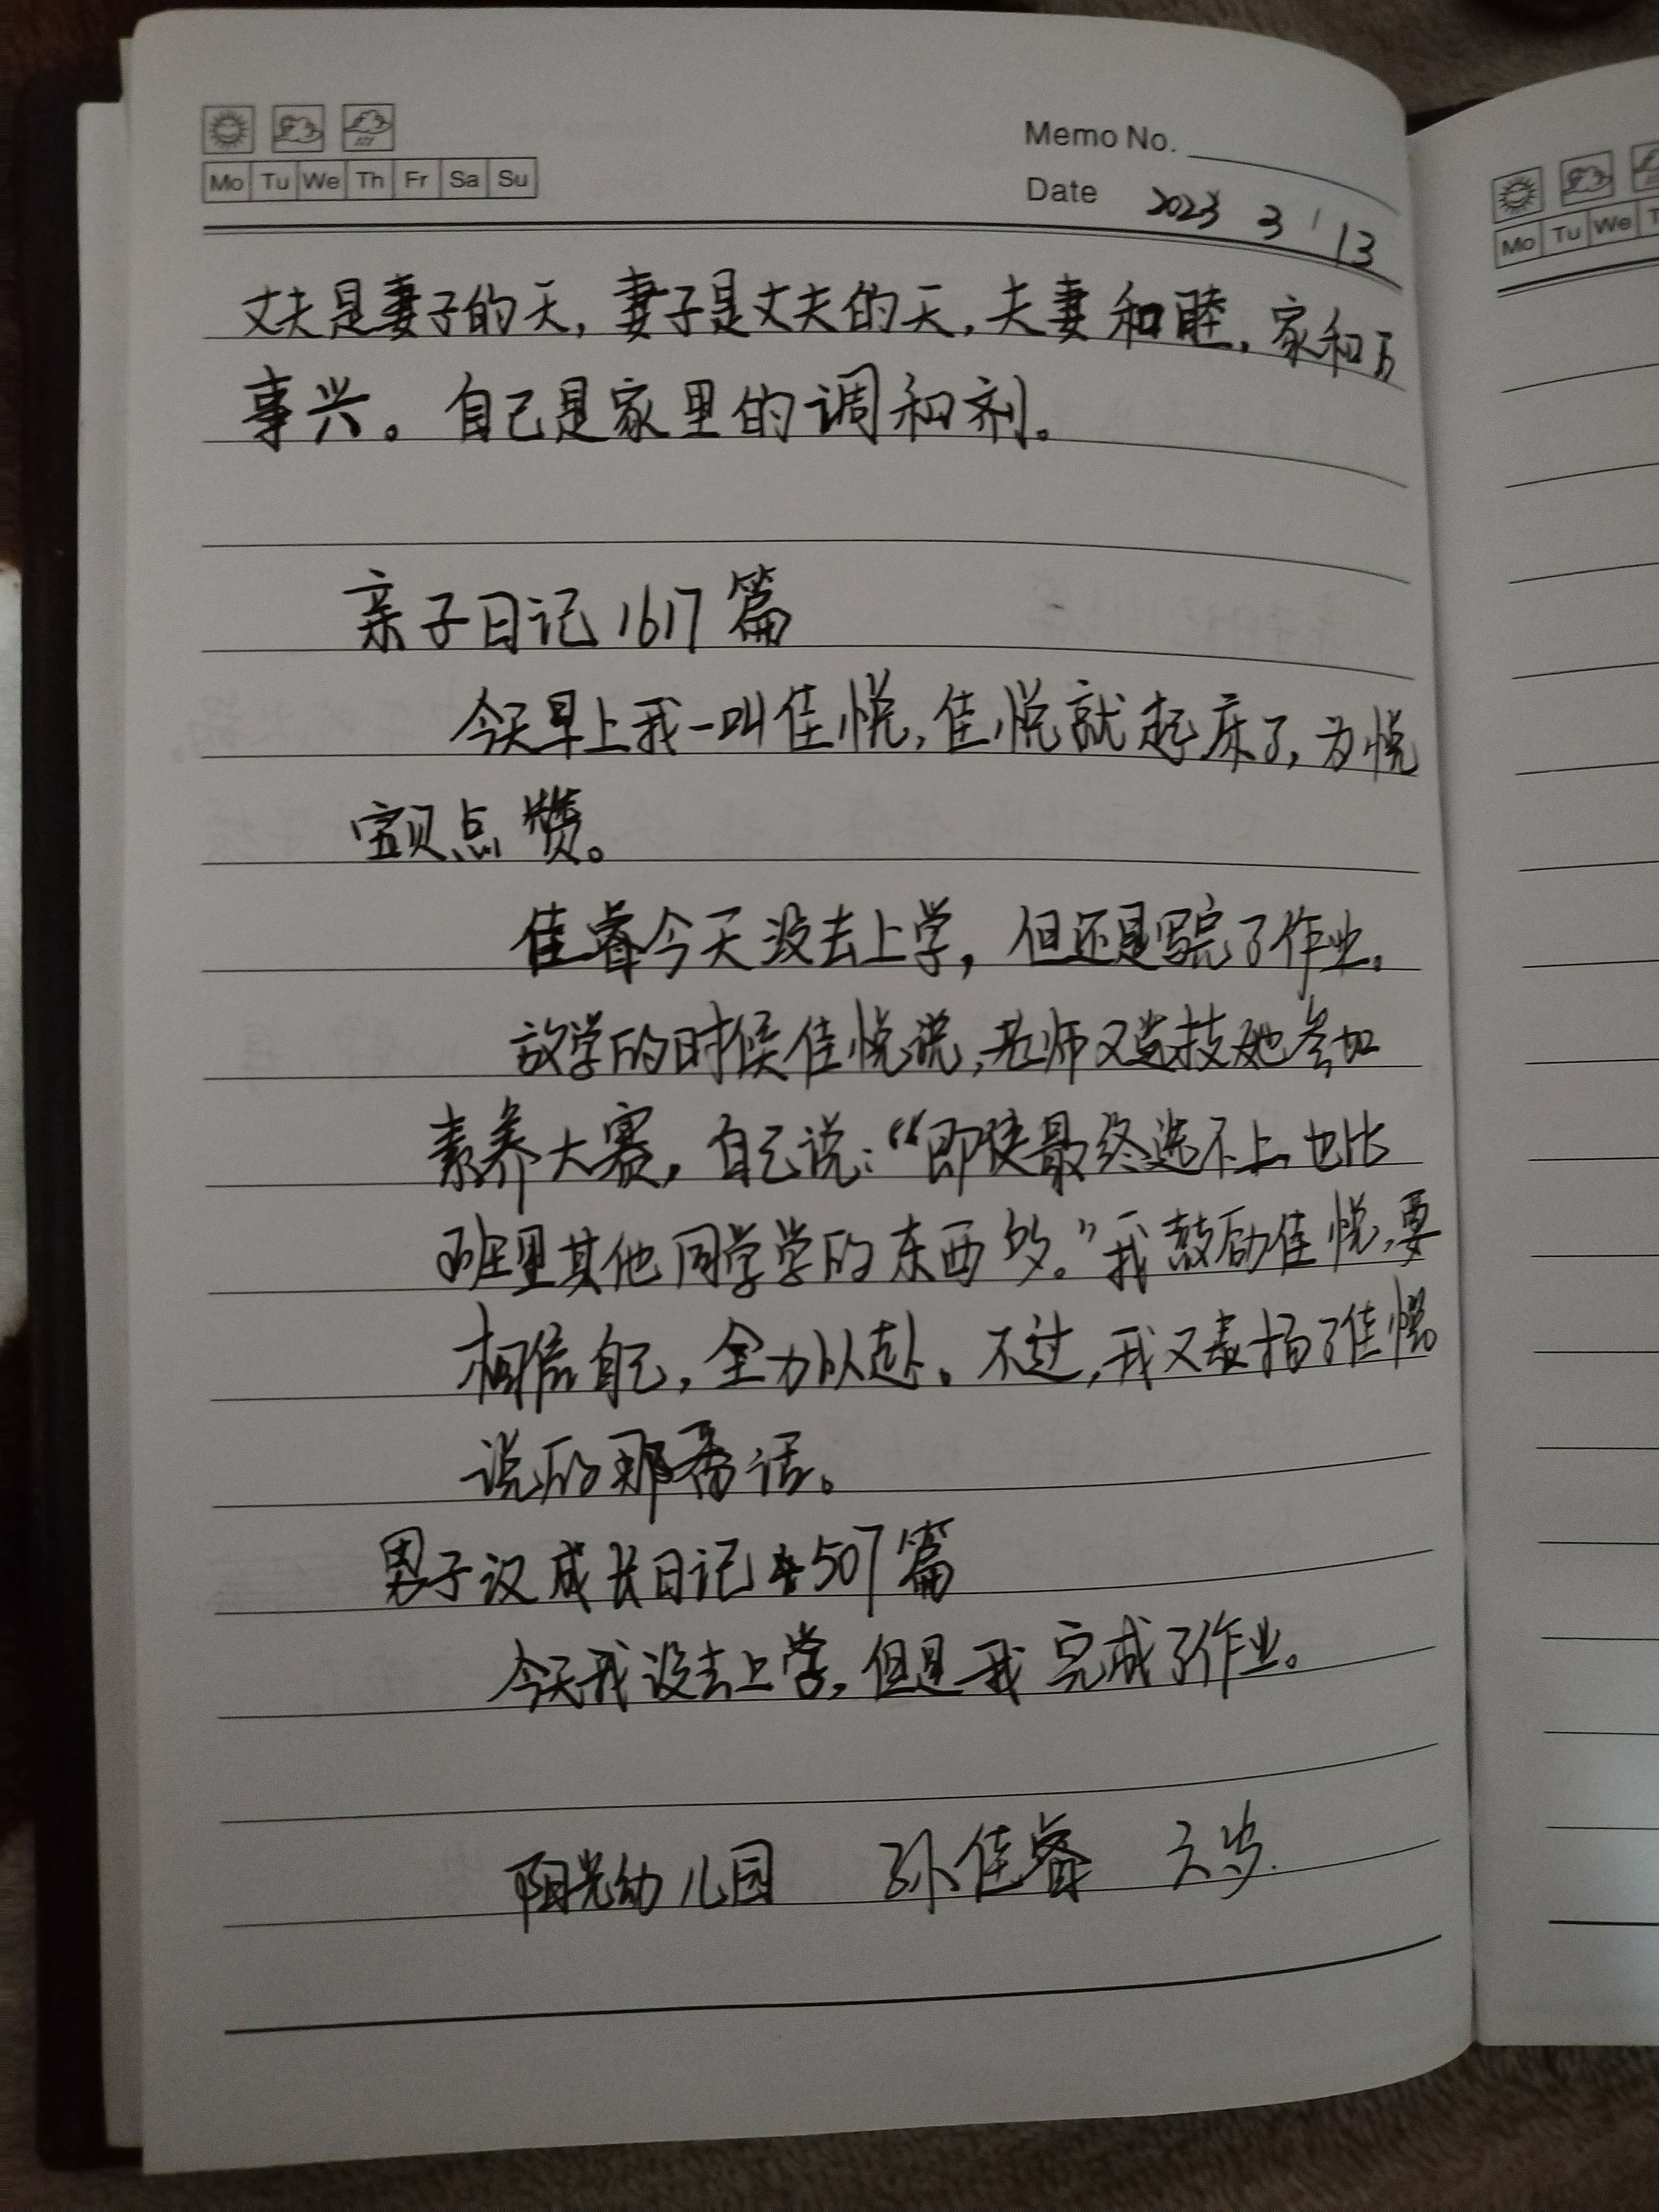 Mo Tu We Th Fr Sa Su
Memo No.
Date 2023 3 13
丈夫是妻子的天,妻子是丈夫的天,夫妻和睦,家和万
事兴。自己是家里的调和剂。
亲子日记1617篇
今天早上我一叫佳悦,佳悦就起床了,为悦
宝贝点赞。
佳睿今天没去上学,但还是写完了作业。
放学的时候佳悦说,老师又选拔她参加
素养大赛,自己说:“即使最终选不上也比
班里其他同学学的东西多。”我鼓励佳悦,要
相信自己,全力以赴。不过,我又表扬了佳悦
说的那番话。
男子汉成长日记507篇
今天我没去上学,但是我完成了作业。
阳光幼儿园 孙佳睿 六岁.
Mo Tu We T